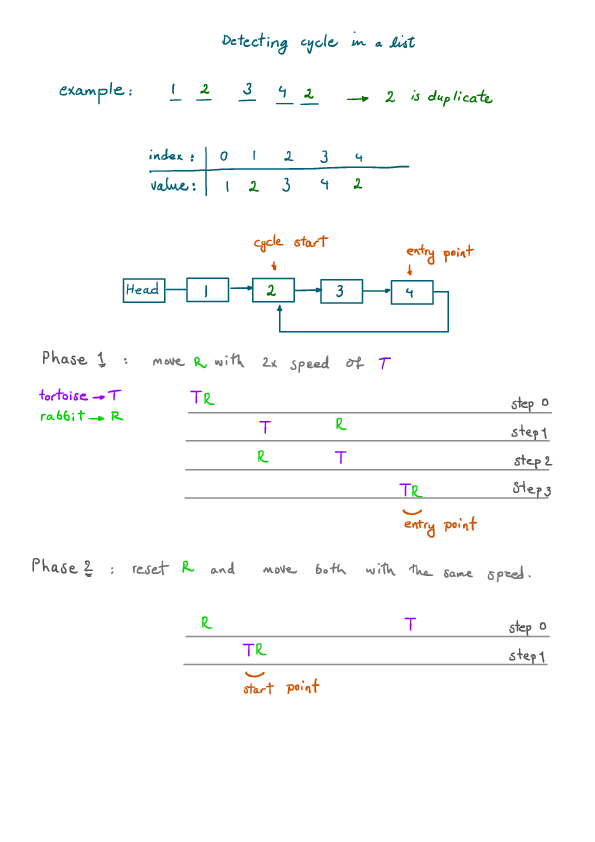 Detecting cycle in a list
example: 1 2 3 4 2 → 2 is duplicate
index: 0 1 2 3 4
value: 1 2 3 4 2
cycle start
entry point
Head 1 2 3 4
Phase 1 : move R with 2x speed of T
tortoise → T
rabbit → R
T R step 0
T R step 1
R T step 2
T R Step 3
entry point
Phase 2 : reset R and move both with the same speed.
R T step 0
T R step 1
start point